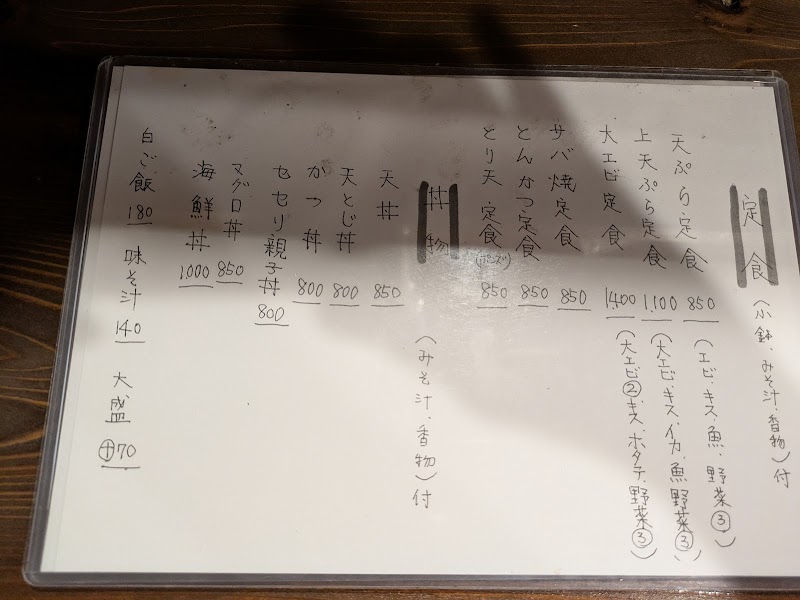 定食 (小鉢、みそ汁、香物)付
天ぷら定食 850 (エビ、キス、魚、野菜③)
上天ぷら定食 1,100 (大エビ、キス、イカ、魚 野菜③)
大エビ定食 1,400 (大エビ②、キス、ホタテ、野菜③)
サバ焼定食 850
とんかつ定食 850
とり天定食(ポンズ) 850
丼物 (みそ汁、香物)付
天丼 850
天とじ丼 800
かつ丼 800
セセリ親子丼 800
マグロ丼 850
海鮮丼 1000
白ご飯 180 味そ汁 140 大盛 ⊕70